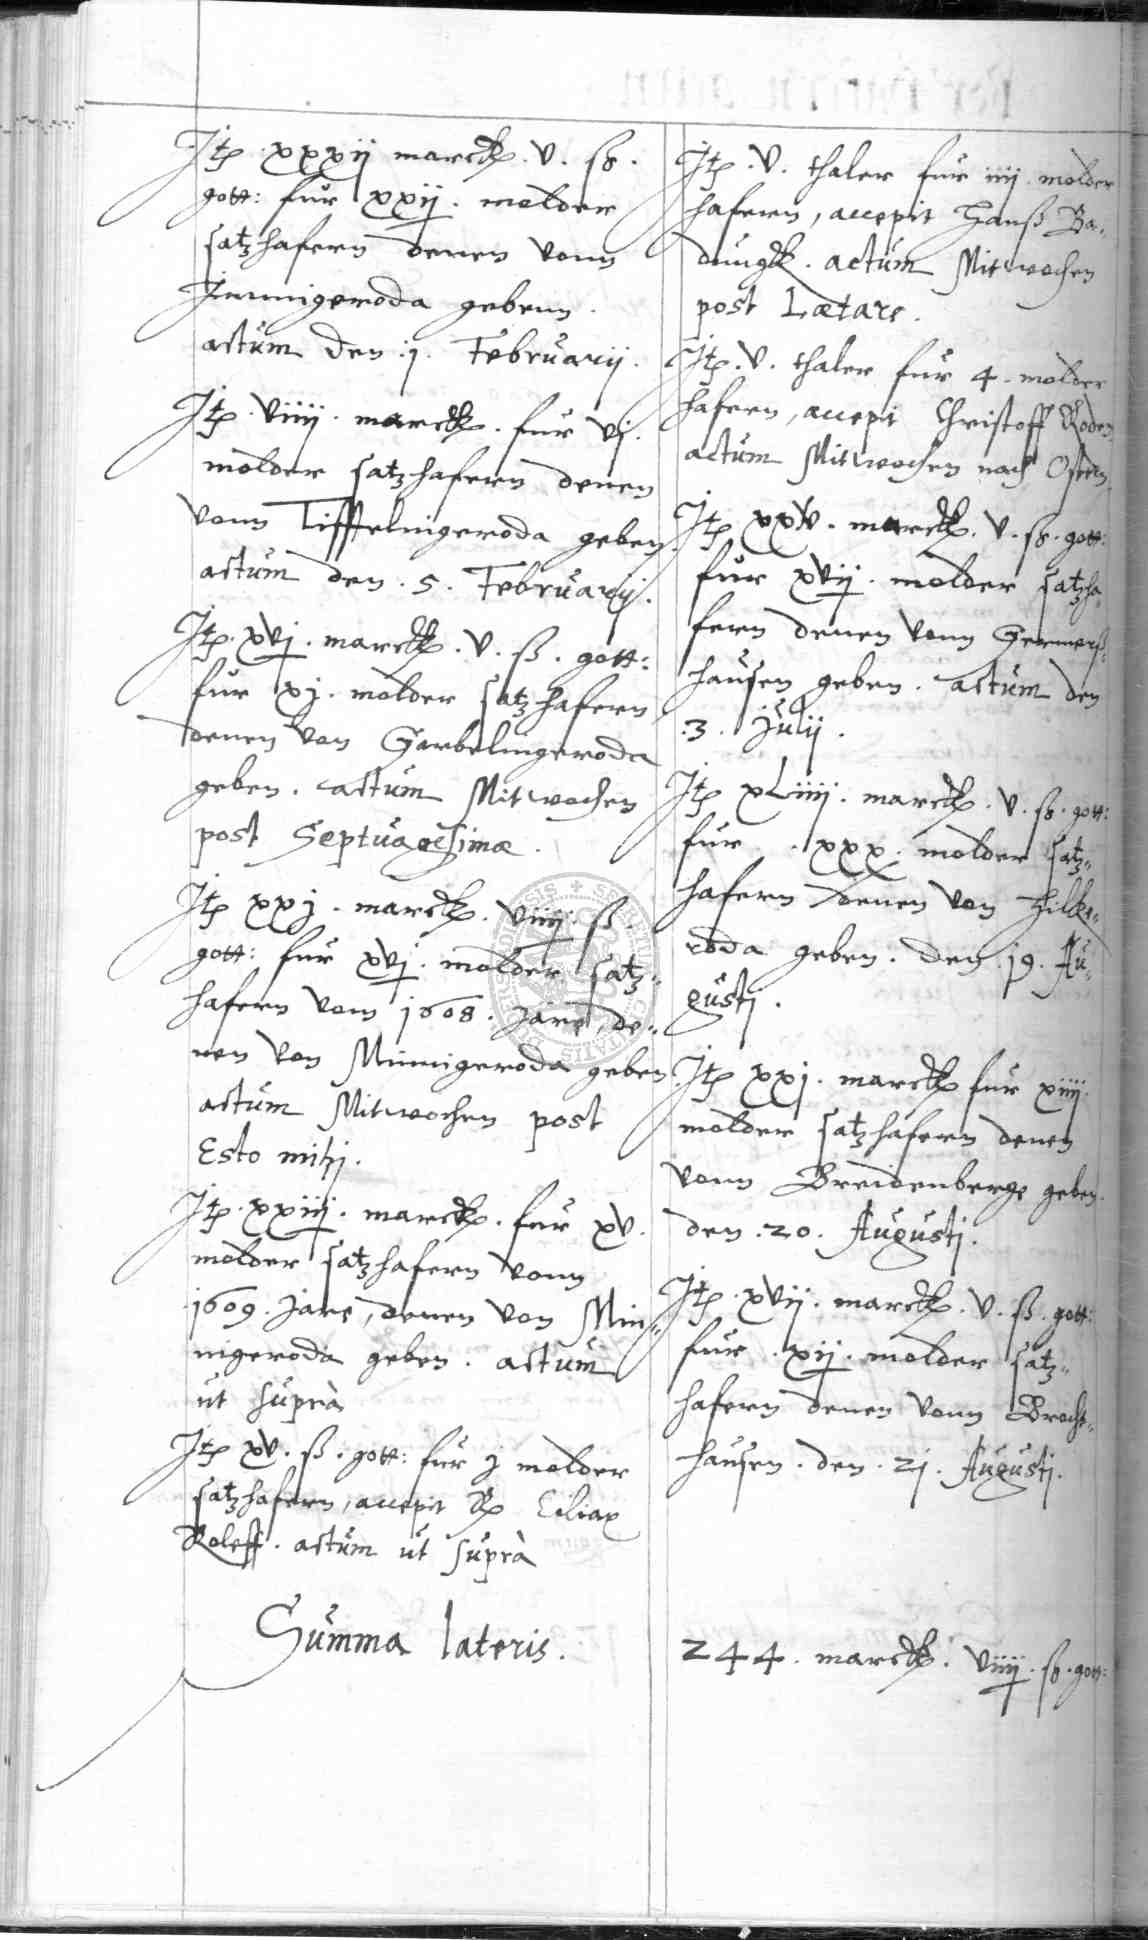 Itē xxxij marck. v. ß.
gott: fur xxij. molder
satzhafern denen vonn
Immigeroda gebenn.
actum den .j. Februarij.
Itē viiij. marck. fur vj.
molder satzhafern denen
vonn Tifftelingeroda geben.
actum den .5. Februarij.
Itē xvj. marck. v. ß. gott:
fur xj. molder satzhafern
denen von Gerbelingeroda
geben. actum Mitwochen
post Septuagesimæ.
Itē xxj. marck. viiij. ß
gott: fur xvj. molder satz„
hafern vom 1608. jare, de„
nen von Minnigeroda geben
actum Mitwochen post
Esto mihj.
Itē xxiij. marck. fur xv.
molder satzhafern vonn
1609. jare, denen von Min„
nigeroda geben. actum
ut suprà
Itē xv. ß. gott: fur j molder
satzhafern, accepit Ciliax
Roleff. actum ut suprà
Summa lateris.
Itē .v. thaler fur iiij. molder
hafern, accepit Hanß Ba„
dungk. actum Mitwochen
post Lætare.
Itē .v. thaler fur 4. molder
hafern, accepit Christoff Roden
actum Mitwochen nach Ostern
Itē xxv. marck. v. ß. gott:
fur xvij. molder satzha„
fern denen vonn Germerß„
hausen geben. actum den
.3. julij.
Itē xLiiij. marck. v. ß. gott:
fur .xxx. molder satz„
hafern denen von Hilke„
roda geben. den .19. Au„
gustj.
Itē xxj. marck fur xiiij.
molder satzhafern denen
vonn Breidenberge geben.
den .20. Augustj.
Itē .xvij. marck. v. ß. gott:
fur .xij. molder satz„
hafern denen vonn Brocht„
hausen. den .21. Augustj.
244. marck. viiij. ß. gott: